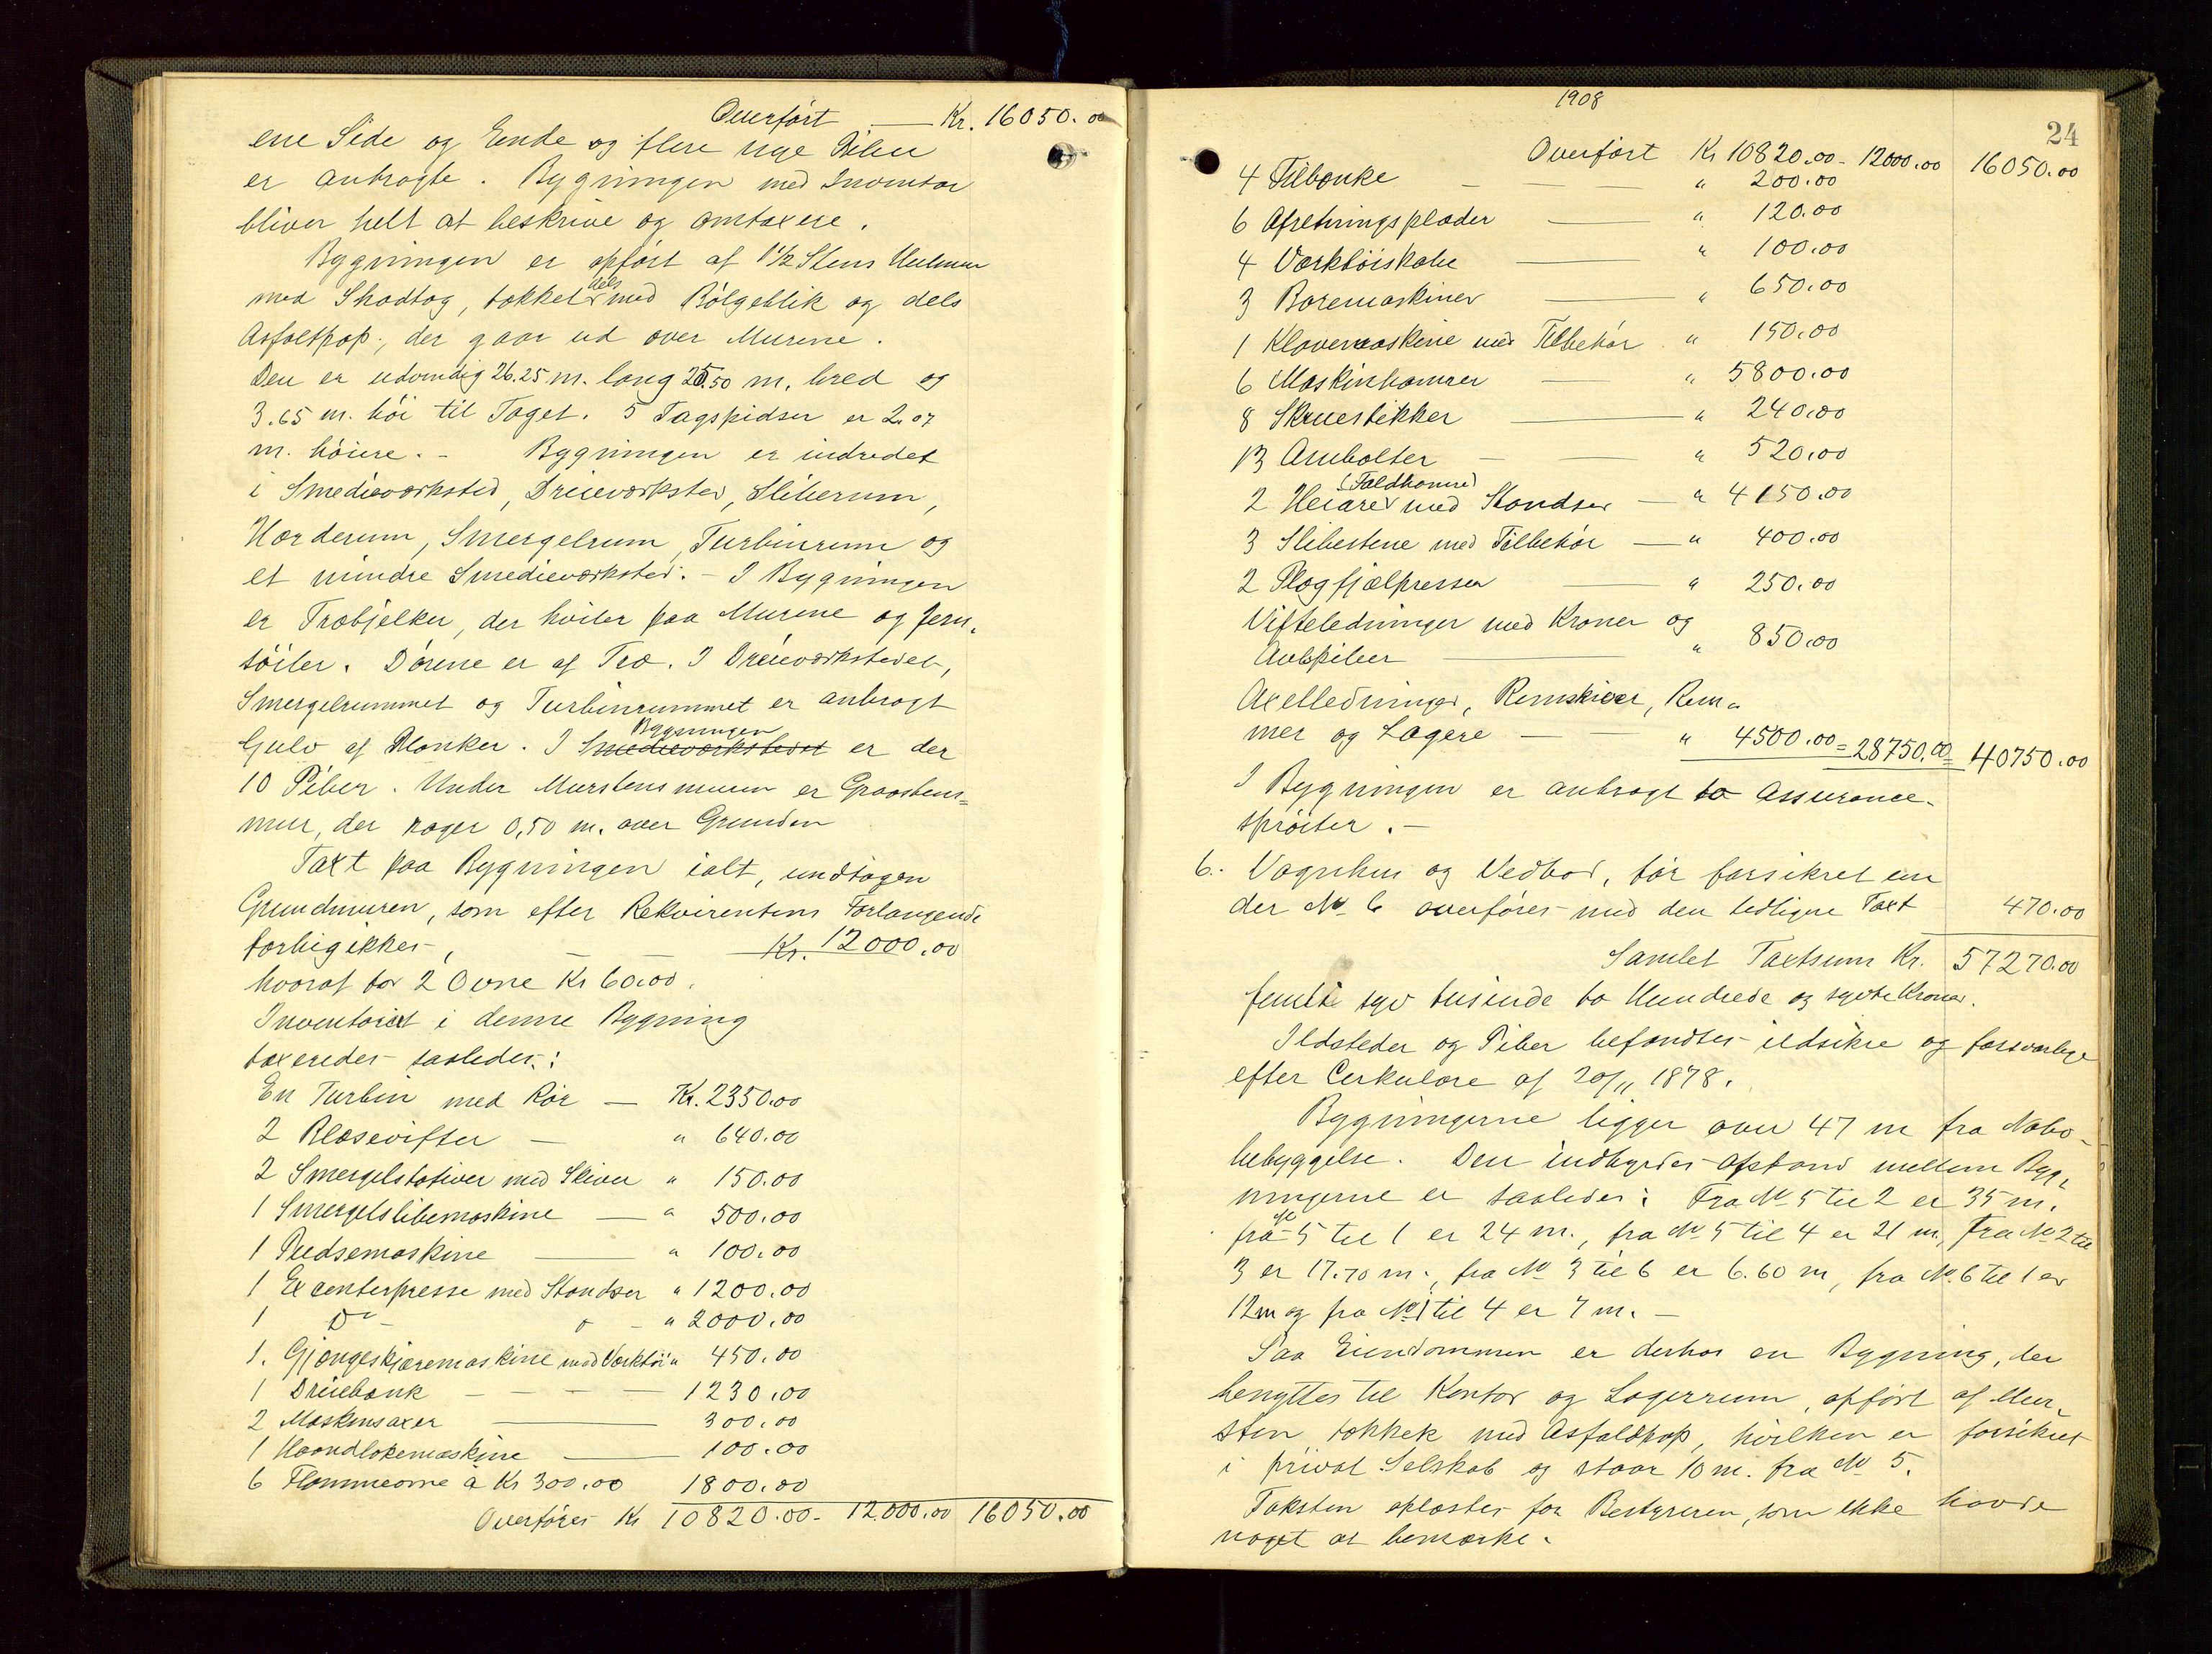 Overført — Kr. 16050.00
ene Side og Ende og flere nye Piber
er anbragte. Bygningen med Inventar
bliver helt at beskrive og omtaxere.
Bygningen er opført af 1½ Stens Helmur
med Shadtag, tækket dels med Bølgeblik og dels
Asfaltpap, der gaar ud over Murene.
Den er udvendig 26.25 m. lang 25.50 m. bred og
3.65 m. høi til Taget. 5 Tagspidser er 2.07
m. høiere. - Bygningen er indredet
i Smedieværksted, Dreieværksted, Sliberum,
Hærderum, Smergelrum, Turbinrum og
et mindre Smedieværksted. - I Bygningen
er Træbjelker, der hviler paa Murene og Jern-
søiler. Dørene er af Træ. I Dreieværkstedet,
Smergelrummet og Turbinrummet er anbragt
Gulv af Planker. I Smedieværkstedet Bygningen er der
10 Piber. Under Murstensmuren er Graastens=
mur, der rager 0,50 m. over Grunden
Taxt paa Bygningen ialt, undtagen
Grundmuren, som efter Rekvirentens Forlangende
forbigikkes, — — Kr. 12000.00
hvoraf for 2 Ovne Kr 60.00.
Inventariet i denne Bygning
taxeredes saaledes:
En Turbin med Rør — Kr. 2350.00
2 Blæsevifter — " 640.00
2 Smergelstativer med Skiver " 150.00
1 Smergelslibemaskine — " 500.00
1 Pudsemaskine — " 100.00
1 Excenterpresse med Standser " 1200.00
1 Do - o - " 2000.00
1. Gjængeskjæremaskine med Værktøi " 450.00
1 Dreiebænk — — — — 1230.00
2 Maskinsaxer — 300.00
1 Haandlokemaskine — 100.00
6 Flammeovne à Kr 300.00 1800.00
Overføres Kr 10820.00 - 12.000.00 16050.00
1908
24
Overført Kr 10820.00 - 12000.00 16050.00
4 Filbænke — — — " 200.00
6 Afretningsplader — " 120.00
4 Værktøiskabe — " 100.00
3 Boremaskiner — " 650.00
1 Klovemaskine med Tilbehør " 150.00
6 Maskinhamrer — " 5800.00
8 Skruestikker — " 240.00
13 Ambolter — — " 520.00
2 Heiarer (Faldhamre) med Standser — " 4150.00
3 Slibestene med Tilbehør — " 400.00
2 Plogfjælpresser — " 250.00
Vifteledninger med Kraner og
Avlpiber — " 850.00
Axelledninger, Remskiver, Rem-
mer og Lagere — — " 4500.00 = 28750.00 = 40750.00
I Bygningen er anbragt to Assurance-
sprøiter. -
6. Vognhus og Vedbod, før forsikret un
der № 6 overføres med den tidligere Taxt 470.00
Samlet Taxtsum Kr. 57270.00
femti syv tusinde to Hundrede og sytti Kroner.
Ildsteder og Piber befandtes ildsikre og forsvarlige
efter Cerkulære af 20/11 1878.
Bygningerne ligger over 47 m fra Nabo-
bebyggelse. Den indbyrdes Afstand mellem Byg-
ningerne er saaledes: Fra № 5 til 2 er 35 m.
fra № 5 til 1 er 24 m., fra № 5 til 4 er 21 m, fra № 2 til
3 er 17.70 m., fra № 3 til 6 er 6.60 m, fra № 6 til 1 er
12 m og fra № 1 til 4 er 7 m. —
Paa Eiendommen er derhos en Bygning, der
benyttes til Kontor og Lagerrum, opført af Mur-
sten tækket med Asfaldpap, hvilken er forsikret
i privat Selskab og staar 10 m. fra № 5.
Taksten oplæstes for Bestyreren, som ikke havde
noget at bemærke.